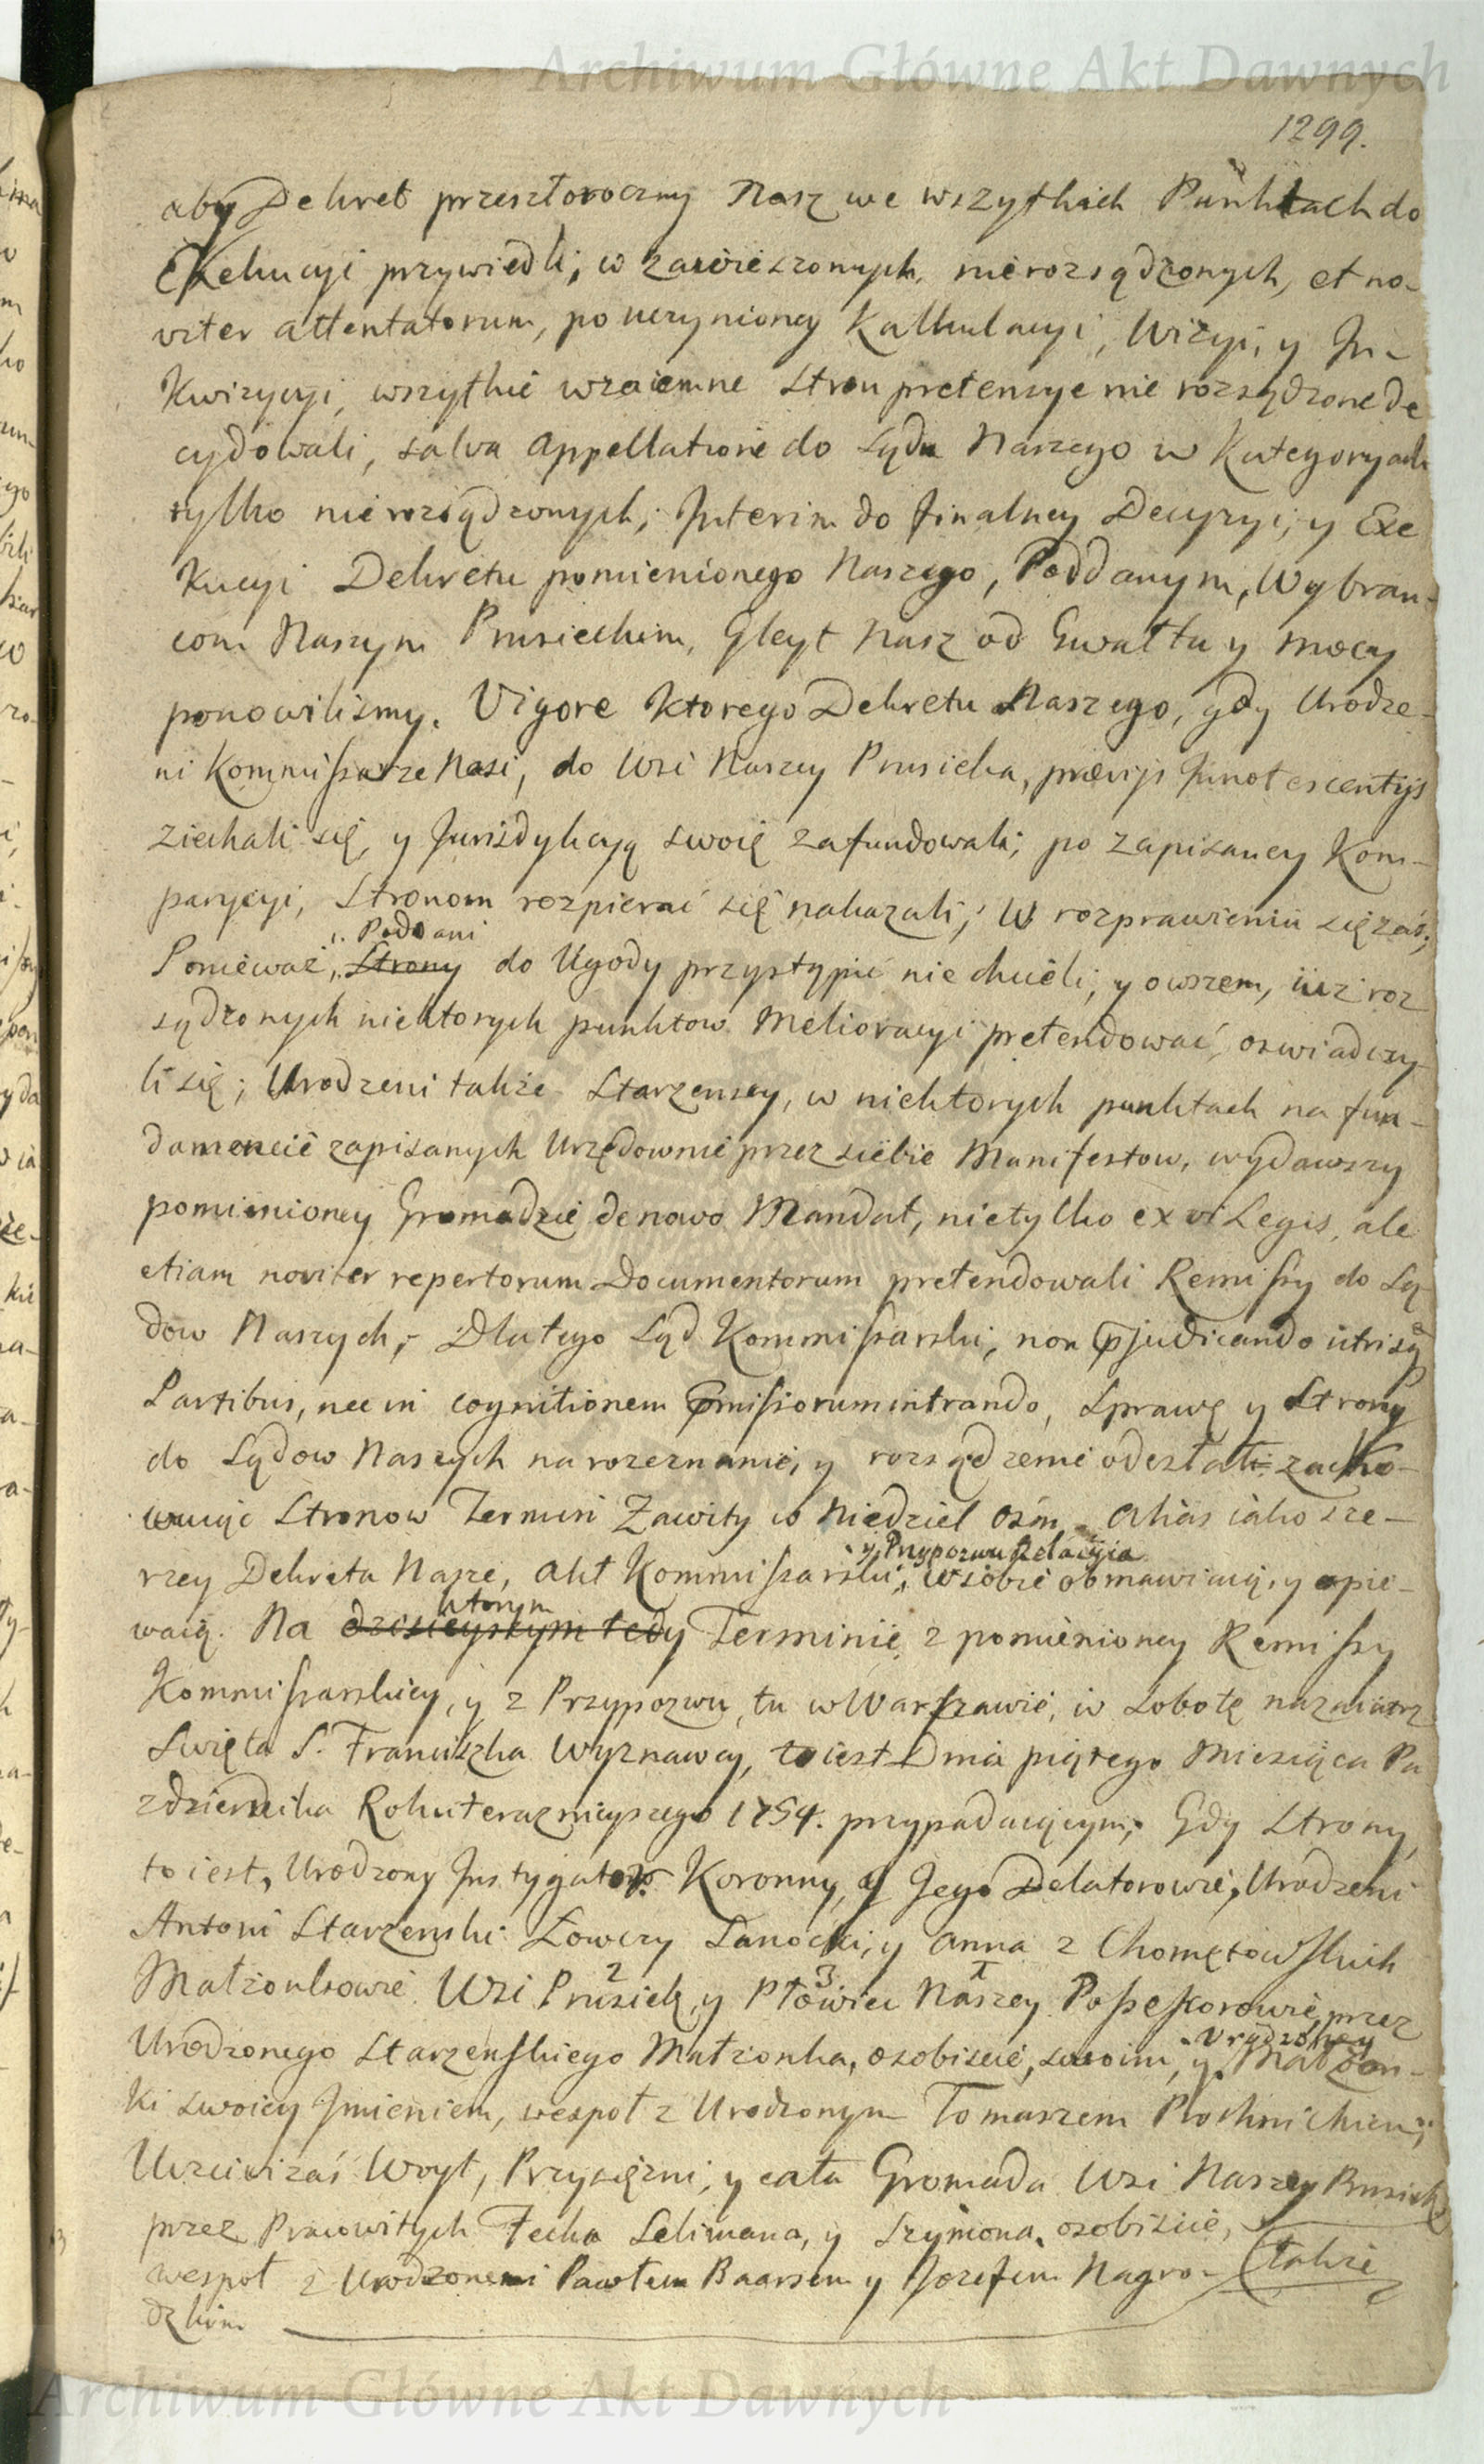 Archiwum Główne Akt Dawnych
1299.
aby Dekret przeszłoroczny Nasz we wszytkich Punktach do
Exekucyi przywiedli; w zawieszonych, nierozsądzonych, et no-
viter attentatorum, po uczynioney Kalkulacyi, Wizyi, y In-
kwizycyi, wszytkie wzaiemne Stron pretensye nie rozsądzone de
cydowali, salva Appellatione do Sądu Naszego w Kategoryach
tylko nierozsądzonych; Interim do finalney Decyzyi, y Exe
kucyi Dekretu pomienionego Naszego, Poddanym, Wybran-
com Naszym Prusieckim, Gleyt Nasz od Gwałtu y mocy
ponowilismy. Vigore ktorego Dekretu Naszego, gdy Urodze-
ni Kommissarze Nasi, do Wsi Naszey Prusieka, prævijs Innotescentijs
ziechali się, y Jurisdykcyą swoię zafundowali; po zapisaney Kom-
parycyi, Stronom rozpierać się nakazali; W rozprawieniu się zaś,
Poddani
Ponieważ, Strony do Ugody przystąpić nie chcieli, y owszem, iuż roz
sądzonych niektorych punktow Melioracyi pretendować, oswiadczy
li się; Urodzeni także Starzenscy, w niektorych punktach na fun-
damencie zapisanych Urzędownie przez siebie Manifestow, wydawszy
pomienioney Gromadzie denowo Mandat, nietylko ex vi Legis, ale
etiam noviter repertorum Documentorum pretendowali Remissy do Są
dow Naszych; Dlatego Sąd Kommissarski, non pjudicando utrisq
Partibus, nec in cognitionem pmissorum intrando, Sprawę y Strony
do Sądow Naszych na rozeznanie, y rozsądzenie odesłali zacho-
wuiąc Stronow Termin Zawity w Niedziel osm, alias iako sze-
y Przypozwu Relacyia
rzey Dekreta Nasze, Akt Kommissarski, w sobie obmawiaią, y opie-
ktorym
waią. Na dzisieyszym tedy Terminie z pomienioney Remissy
Kommissarskiey, y z Przypozwu, tu w Warszawie, w Sobotę nazaiutrz
Swięta S. Franciszka Wyznawcy, to iest Dnia piątego Miesiąca Pa
zdziernika Roku terazniejszego 1754. przypadaiącym; Gdy Strony,
to iest, Urodzony Instygator Koronny, y Jego Delatorowie, Urodzeni
Antoni Starzenski Łowczy Sanocki, y Anna z Chomętowskich
2 3 1
Małżonkowie Wsi Prusiek, y Płowiec Naszey Possessorowie, przez
Urodzoney
Urodzonego Starzenskiego Małżonka, osobiscie, swoim, y Małżon-
ki swoiey Imieniem, wespoł z Urodzonym Tomaszem Prochnickim;
Uczciwi zaś Woyt, Przysięzni, y cała Gromada Wsi Naszey Prusiek
przez Pracowitych Fecka Selimana, y Szymona, osobiscie,
także
wespoł z Urodzonemi Pawłem Baarsem y Jozefem Nagro-
dzkim
Archiwum Główne Akt Dawnych